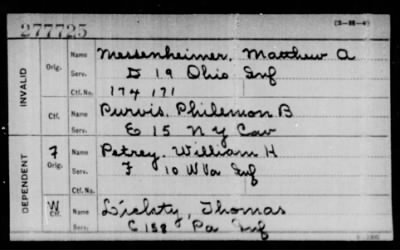 277725
(3-88-4)
INVALID
Orig.
Name
Messenheimer, Matthew A
Serv.
D 19 Ohio Inf
Ctf. No.
174 171
Ctf.
Name
Purvis, Philemon B
Serv.
E 15 N Y Cav
DEPENDENT
F
Orig.
Name
Petrey, William H
Serv.
F 10 W Va Inf
Ctf. No.
W
Ctf.
Name
Thomas
Serv.
C 158 Pa Inf